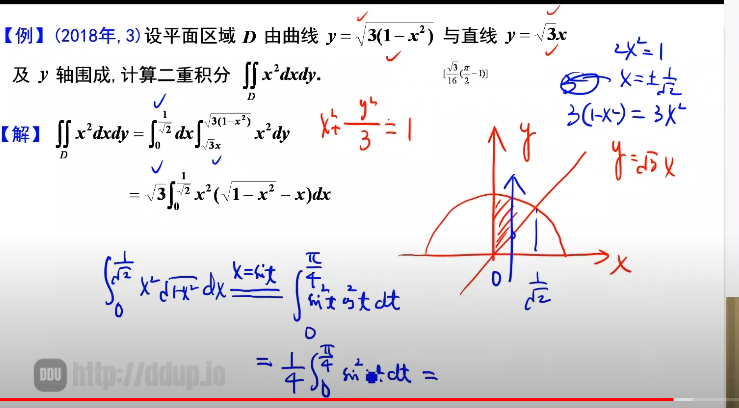 【例】(2018年,3)设平面区域 D 由曲线 y = √3(1−x²) 与直线 y = √3x
及 y 轴围成, 计算二重积分 ∬_D x²dxdy. [√3/16(π/2−1)]
【解】∬_D x²dxdy = ∫_0^{1/√2} dx ∫_{√3x}^{√3(1−x²)} x²dy
= √3∫_0^{1/√2} x²(√1−x² − x)dx
2x²=1
x=±1/√2
3(1-x²) = 3x²
x²+y²/3=1
y
y=√3x
0
1/√2
x
∫_0^{1/√2} x²√1-x² dx x=sint ∫_0^{π/4} sin²t cos²t dt
= 1/4 ∫_0^{π/4} sin² dt =
DDU http://ddup.io